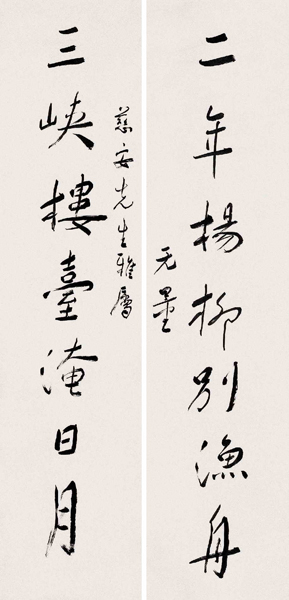 二年楊柳別漁舟
无量
慈安先生雅屬
三峽樓臺淹日月